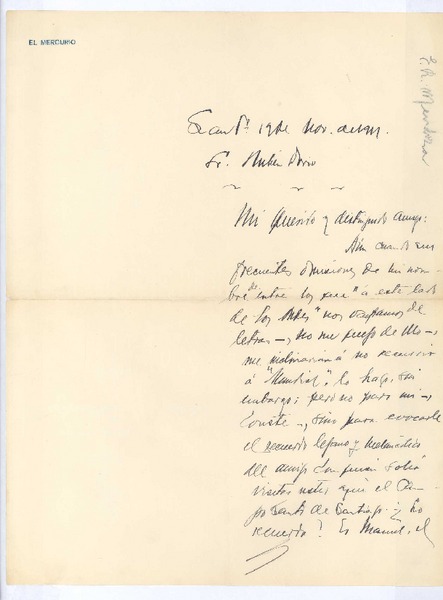 EL MERCURIO
E. R. Mendoza
Sant. 19 de Nov. de 1911.
Sr. Rubén Darío
Mi querido y distinguido amigo:
Aún cuando sus
frecuentes omisiones de mi nom-
bre "de entre los que" a este lado
de los Andes "nos ocupamos de
letras —, no me quejo de ello —,
me inclinarían á no recurrir
á "Mundial", lo hago, sin
embargo; pero no para mí —,
conste —, sino para evocarle
el recuerdo lejano y melancólico
del amigo con quien solía
visitar usted aquí el Cam-
po Santo de Santiago. ¿Lo
recuerda? Es Manuel, el